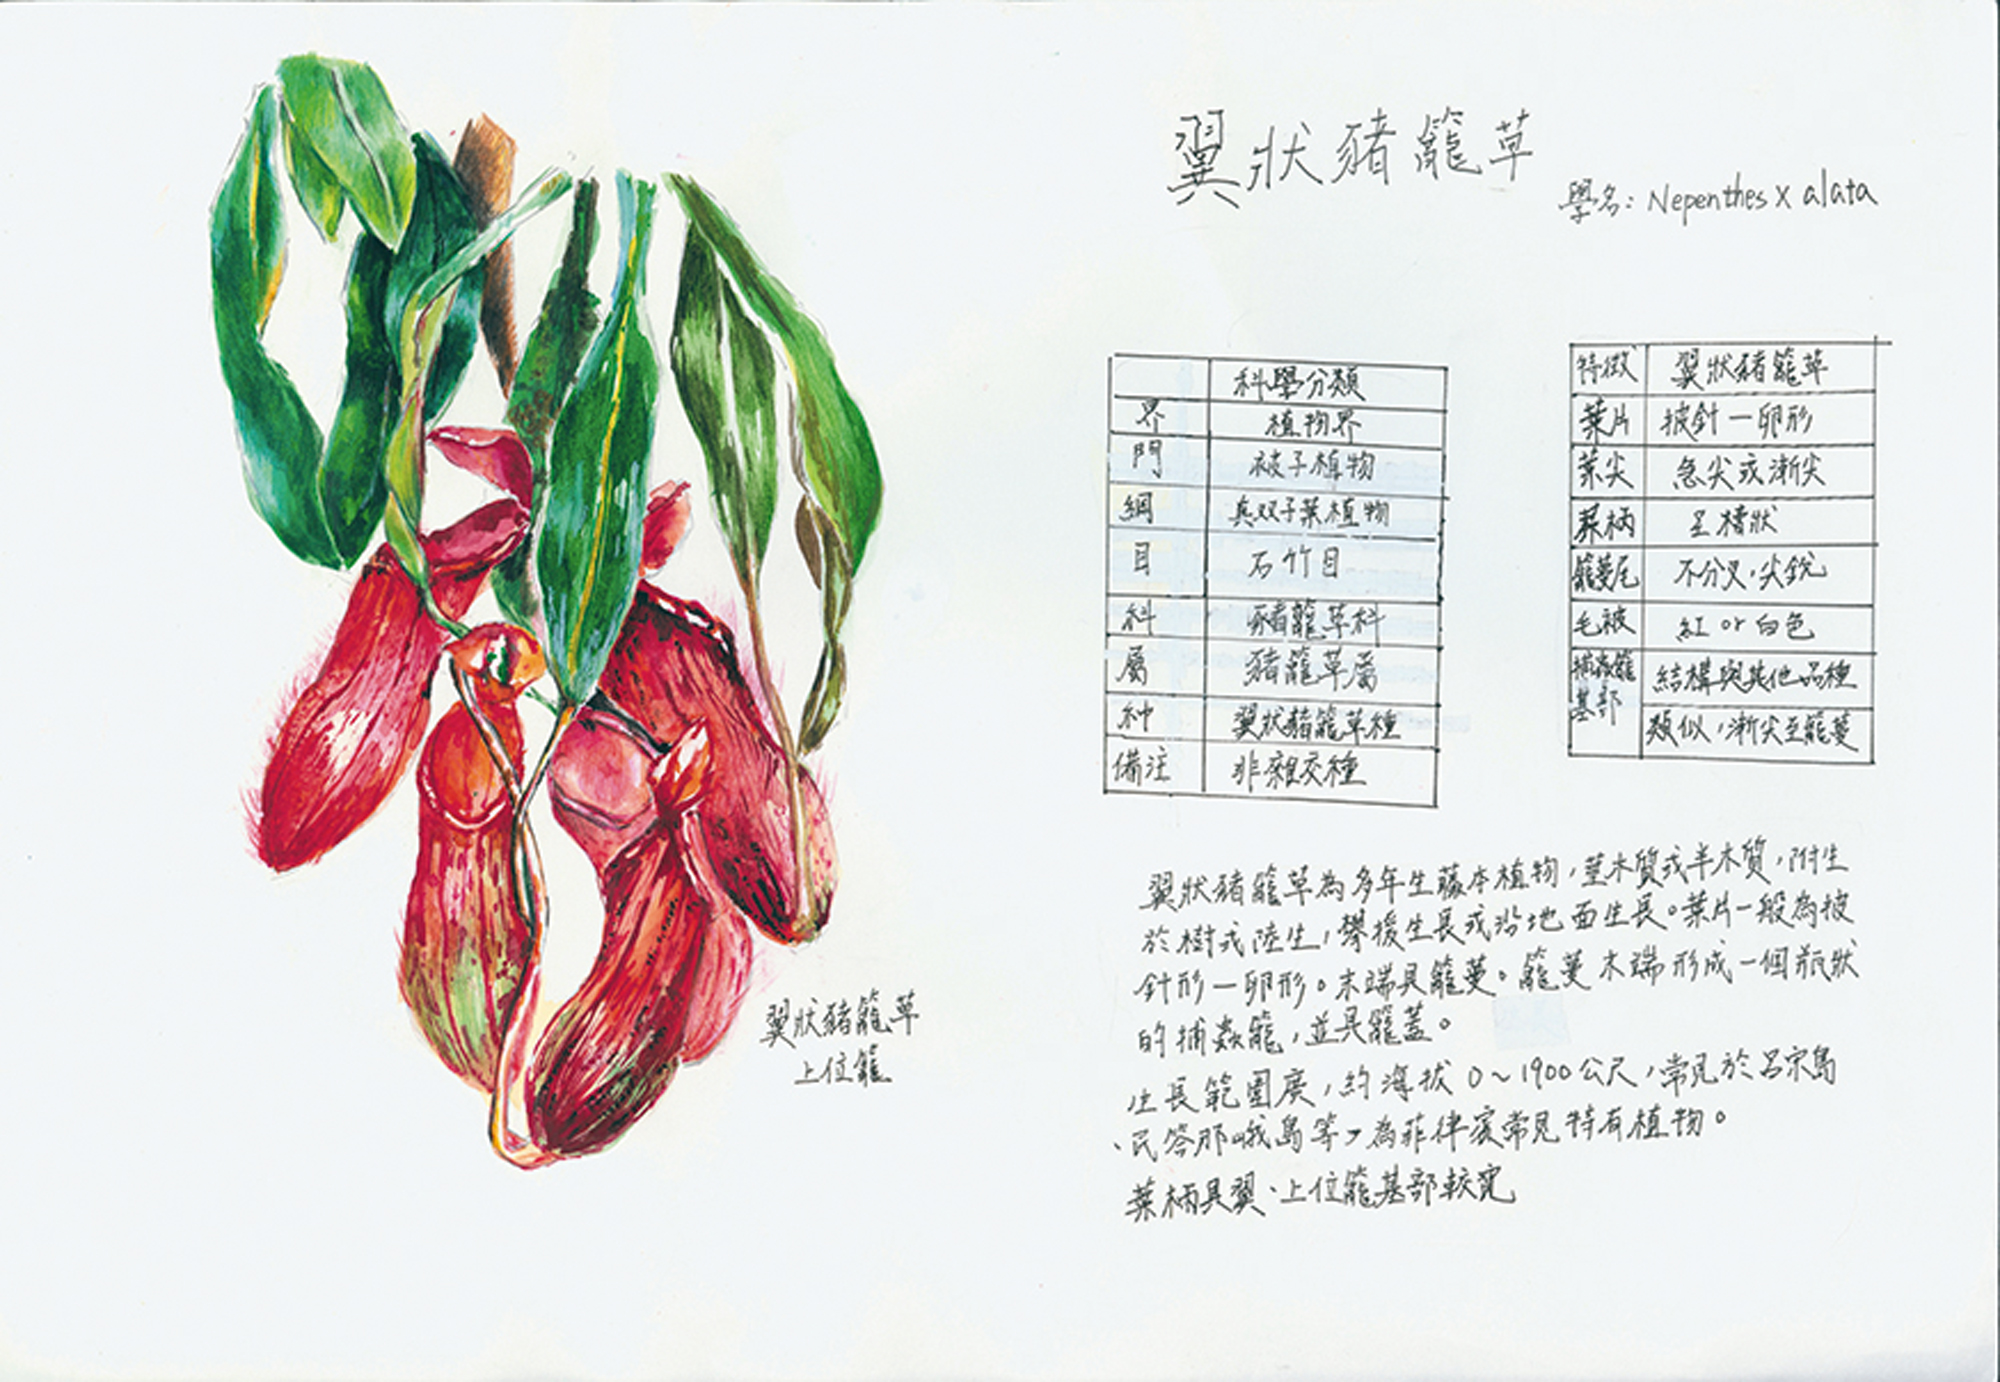 翼狀豬籠草
學名: Nepenthes x alata
科學分類
界 植物界
門 被子植物
綱 真双子葉植物
目 石竹目
科 豬籠草科
屬 豬籠草屬
种 翼狀豬籠草種
備注 非雜交種
特徵 翼狀豬籠草
葉片 披針—卵形
葉尖 急尖或漸尖
葉柄 呈槽狀
籠蔓尾 不分叉,尖銳
毛被 紅 or 白色
捕蟲籠基部 結構與其他品種
類似,漸尖至籠蔓
翼狀豬籠草為多年生藤本植物,莖木質或半木質,附生
於樹或陸生,攀援生長或沿地面生長。葉片一般為披
針形—卵形。末端具籠蔓。籠蔓末端形成一個瓶狀
的捕蟲籠,並具籠蓋。
生長範圍廣,約海拔0~1900公尺,常見於呂宋島
、民答那峨島等,為菲律宾常見特有植物。
葉柄具翼、上位籠基部較寬
翼狀豬籠草
上位籠